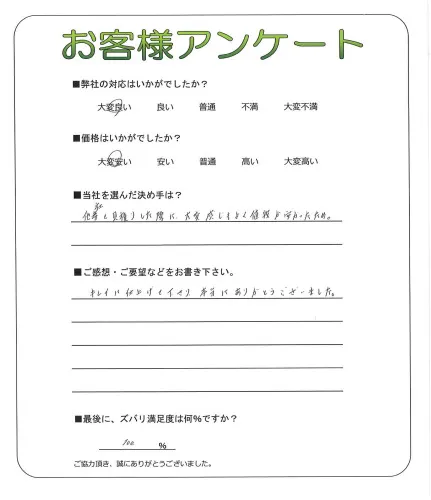 お客様アンケート
■弊社の対応はいかがでしたか？
大変良い 良い 普通 不満 大変不満
■価格はいかがでしたか？
大変安い 安い 普通 高い 大変高い
■当社を選んだ決め手は？
他社と見積りした際に、大変感じもよく価格が安かったため。
■ご感想・ご要望などをお書き下さい。
キレイに仕上げて下さり 本当にありがとうございました。
■最後に、ズバリ満足度は何%ですか？
100 %
ご協力頂き、誠にありがとうございました。